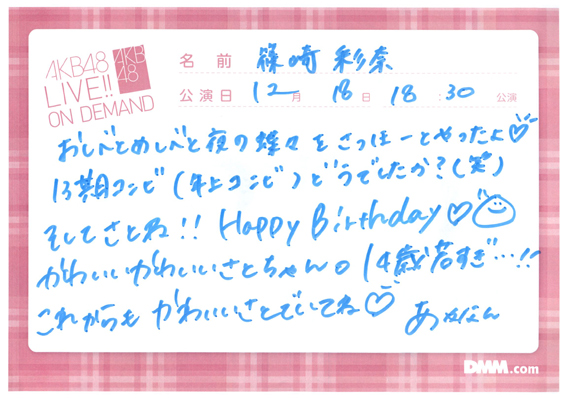 AKB48
LIVE!!
ON DEMAND
AKB
48
名前 篠崎 彩奈
公演日 12月 18日 18:30 公演
おしべとめしべと夜の蝶々をさっほーとやったよ♡
13期コンビ(年上コンビ)どうでしたか?(笑)
そしてさとね!! Happy Birthday♡
かわいいかわいいさとちゃん。14歳若すぎ…!!
これからもかわいいさとでいてね♡ あやなん
DMM.com